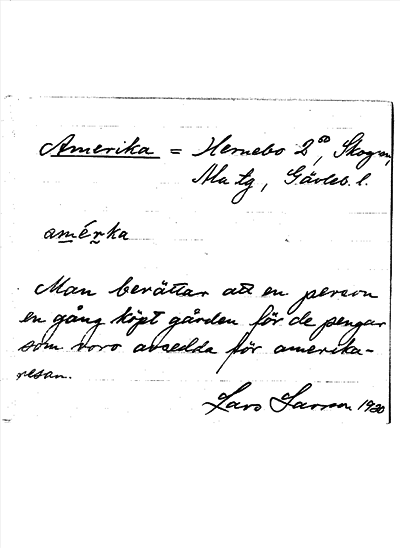 Amerika = Hernebo 2⁶⁰, Skogen,
Ala tg, Gävleb. l.
amérka
Man berättar att en person
en gång köpt gården för de pengar
som voro avsedda för amerika-
resan.
Lars Larsson 1920